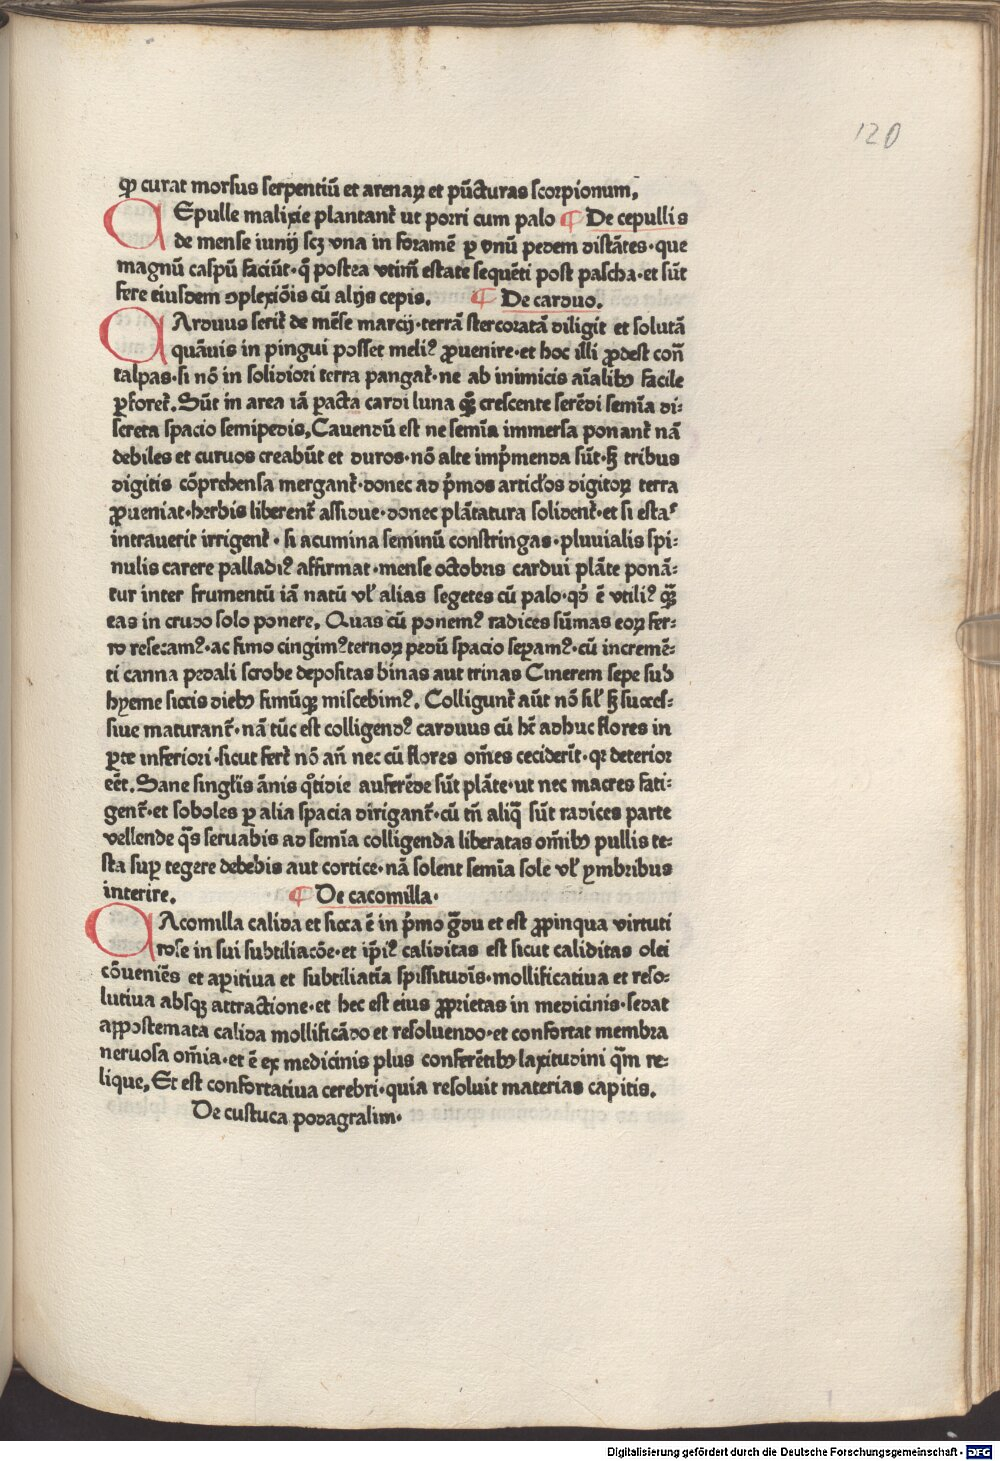 120
ꝙ curat morsus serpentiū et arenaꝝ et pūcturas scorpionum,
CEpulle malixie plantant̄ ut porri cum palo ¶ De cepullis
de mense iunij scꝫ vna in foramē ꝑ vnū pedem distātes·que
magnū caspū faciūt·q̄ postea vtim̄ estate sequēti post pascha·et sūt
fere eiusdem ꝯplexiōis cū alijs cepis. ¶ De carduo.
CArduus serit̄ de mēse marcij·terrā stercoratā diligit et solutā
quāuis in pingui posset meliꝰ ꝓuenire·et hoc illi ꝓdest con̄
talpas·si nō in solidiori terra pangat̄·ne ab inimicis aīalibꝫ facile
ꝑforet̄. Sūt in area iā ꝑacta cardi luna qꝫ̄ crescente serēdi semīa di:
screta spacio semipedis, Cauendū est ne semīa immersa ponant̄ nā
debiles et curuos creabūt et duros·nō alte imp̄menda sūt·ꝭ tribus
digitis cōprehensa mergant̄·donec ad p̄mos articl̄os digitoꝝ terra
ꝓueniat·herbis liberent̄ assidue·donec plātatura solident̄·et si estaˢ
intrauerit irrigent̄·si acumina seminū constringas·pluuialis spi:
nulis carere palladiꝰ affirmat·mense octobris cardui plāte ponā:
tur inter frumentū iā natū vl̄ alias segetes cū palo·qd̄ ē vtiliꝰ qꝫ̄
eas in crudo solo ponere, Quas cū ponemꝰ radices sūmas eoꝝ fer:
ro resecamꝰ·ac fimo cingimꝰ ternoꝝ pedū spacio seꝑamꝰ·cū incremē:
ti canna pedali scrobe depositas binas aut trinas Cinerem sepe sub
hyeme siccis diebꝫ fimūqꝫ miscebimꝰ. Colligunt̄ aūt nō sil̄ ꝭ succes:
siue maturant̄·nā tūc est colligendꝰ carduus cū hꝫ̄ adhuc flores in
ꝑte inferiori·sicut fert̄ nō an̄ nec cū flores om̄es ceciderīt·qꝛ deterior
eēt. Sane singl̄is ānis qͦtidie auferēde sūt plāte·ut nec macres fati:
gent̄·et soboles ꝑ alia spacia dirigant̄·cū tn̄ aliq̄ sūt radices parte
vellende q̄s seruabis ad semīa colligenda liberatas om̄ibꝫ pullis te:
sta suꝑ tegere debebis aut cortice·nā solent semīa sole vl̄ ymbribus
interire. ¶ De cacomilla·
CAcomilla calida et sicca ē in p̄mo g̊du et est ꝓpinqua virtuti
rose in sui subtiliacōe·et ip̄iꝰ caliditas est sicut caliditas olei
cōueniēs et aꝑitiua et subtiliatīa spissitudīs·mollificatiua et reso:
lutiua absqꝫ attractione·et hec est eius ꝓprietas in medicinis·sedat
appostemata calida mollificādo et resoluendo·et confortat membra
neruosa om̄ia·et ē ex medicinis plus conferētibꝫ laxitudini q̄m re:
lique, Et est confortatiua cerebri·quia resoluit materias capitis.
De custuca podagralim·
Digitalisierung gefördert durch die Deutsche Forschungsgemeinschaft - DFG